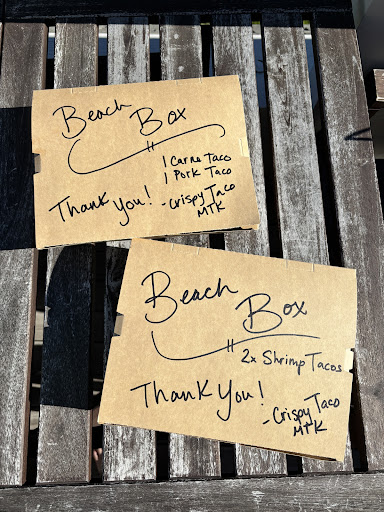 Beach
Box
1 Carne Taco
1 Pork Taco
Thank You!
- Crispy Taco
MTK
Beach
Box
2x Shrimp Tacos
Thank You!
- Crispy Taco
MTK